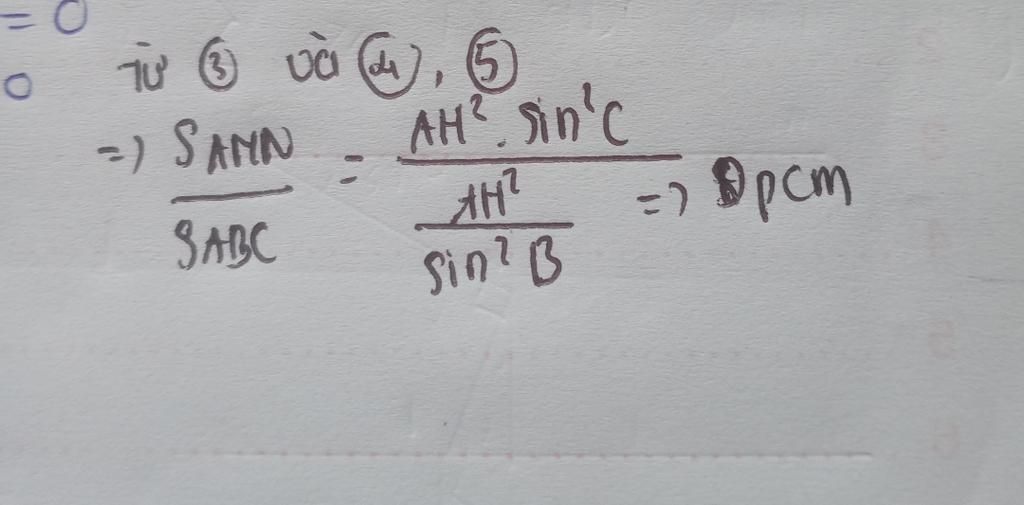 = 0
0 Từ ③ và ④, ⑤
=> SAMN / SABC = AH². sin²C / (AH² / sin² B) => Đpcm